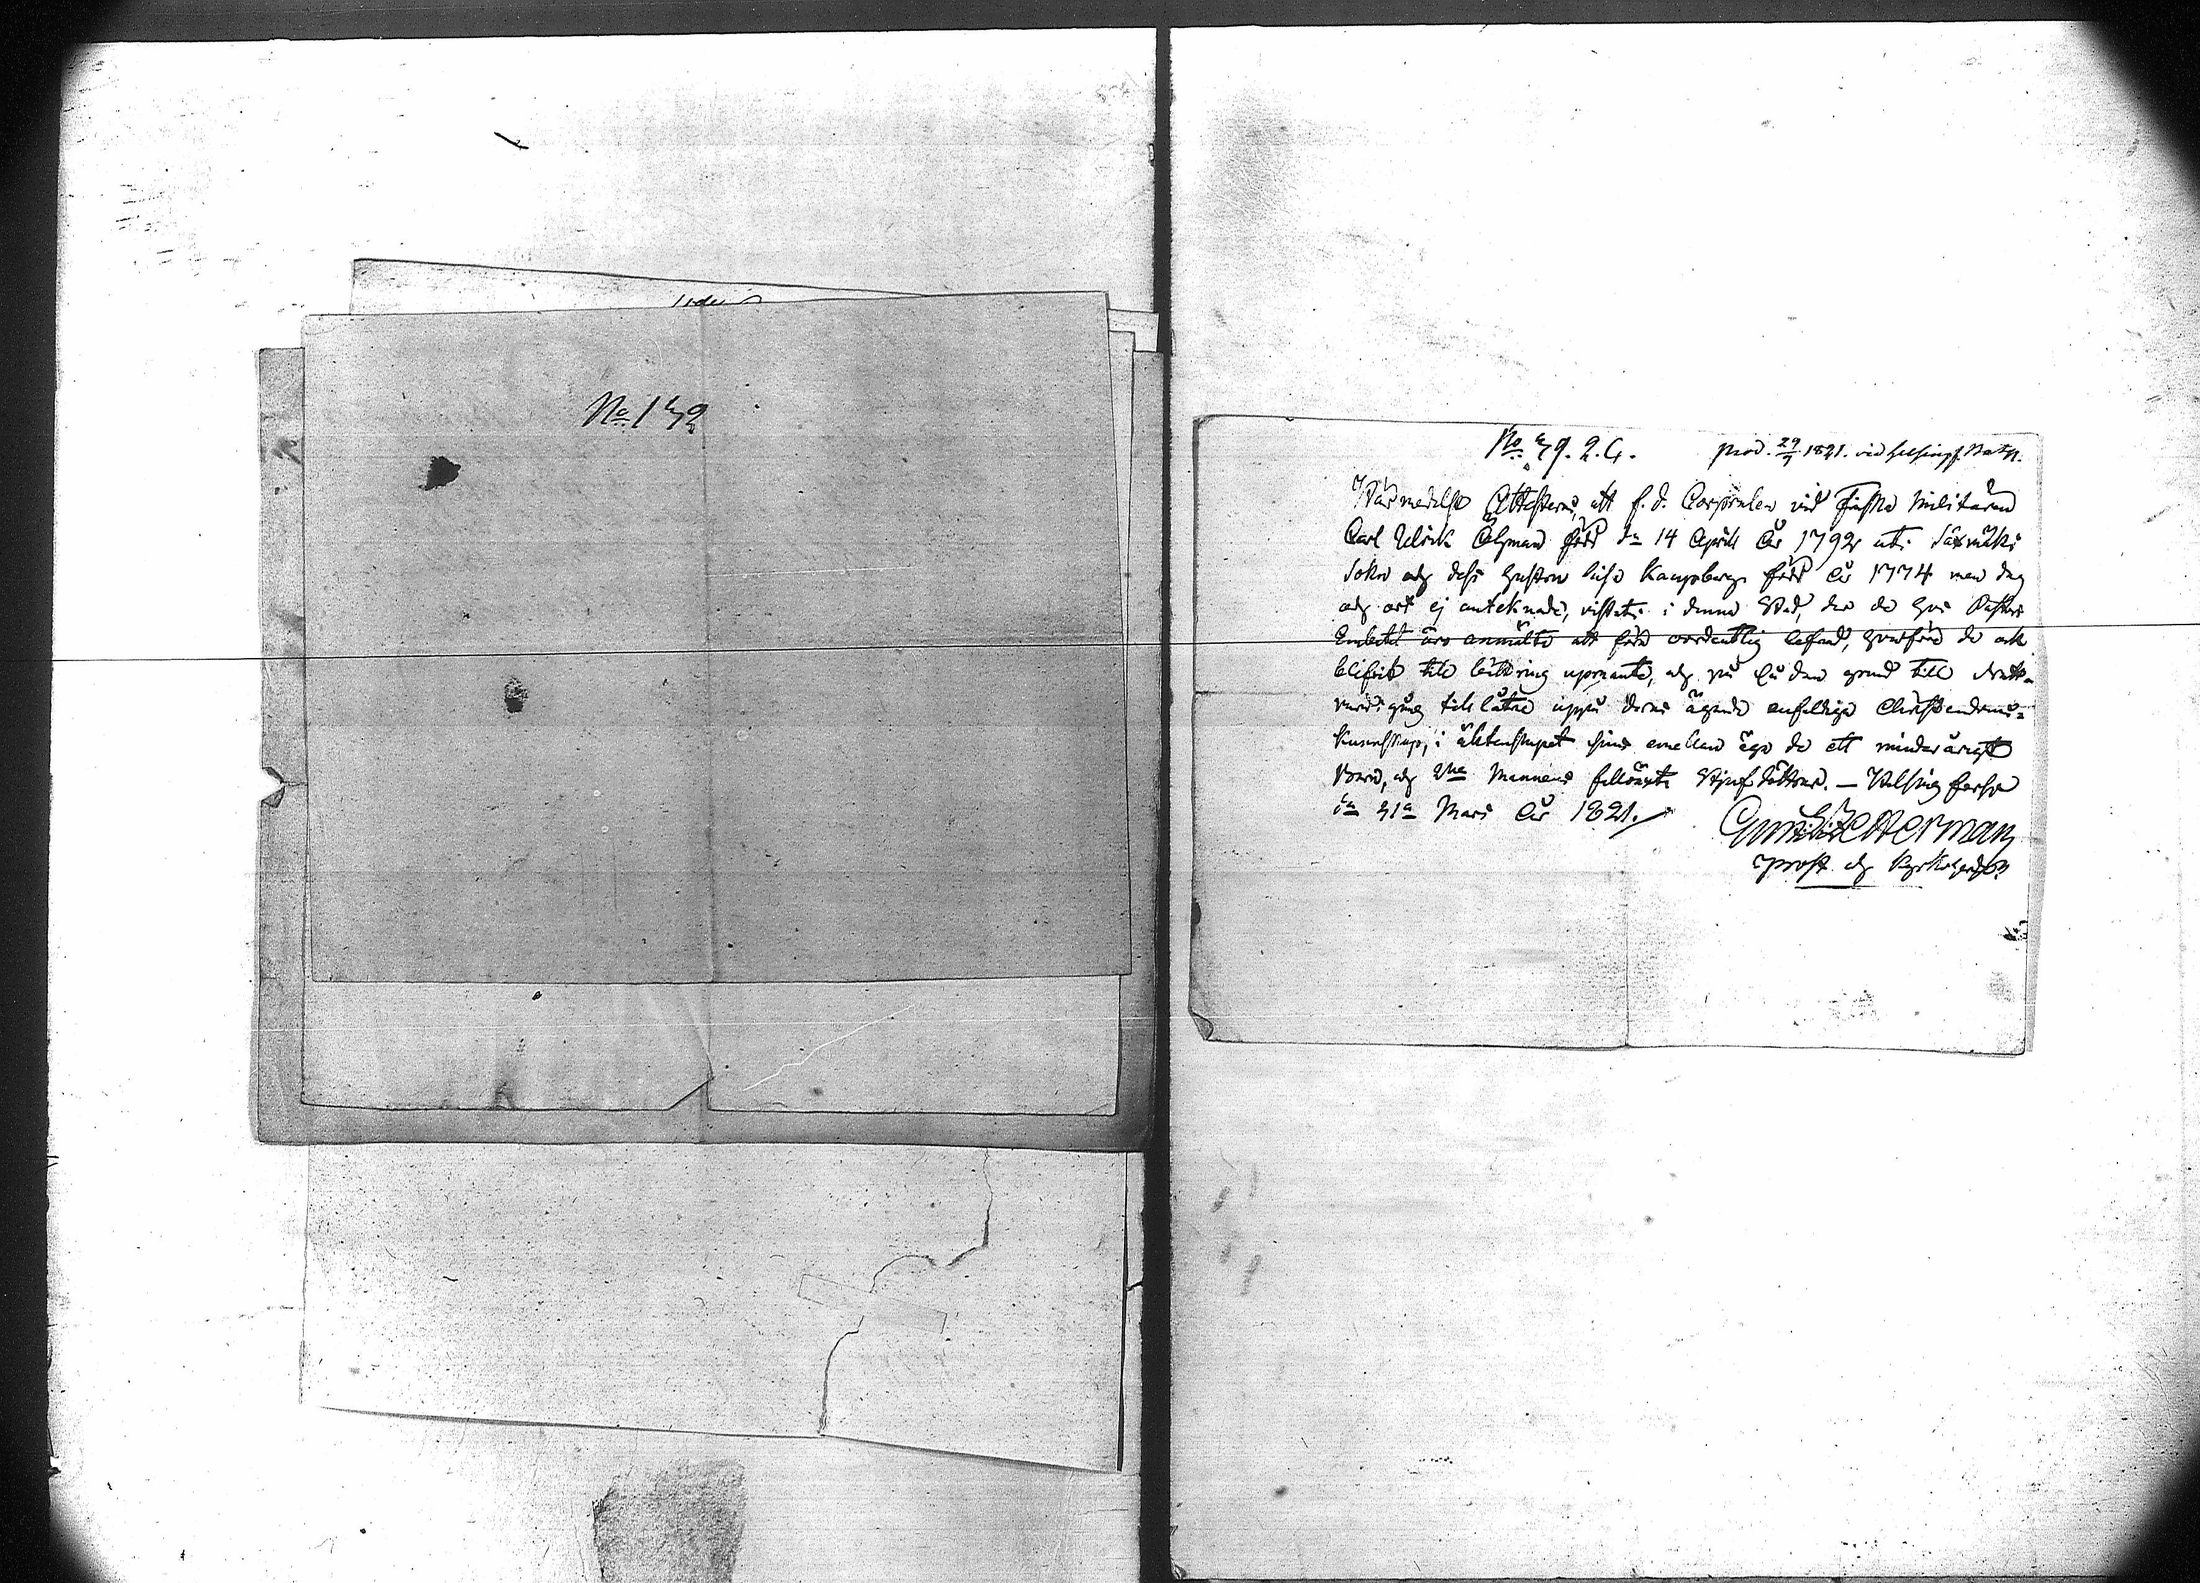 No 132
No 39. 2. C. prod. 29/9 1821. vid Helsingf. Rådst.
Härmedelst Attesteras, att f. d. Corporalen vid Finska Militairen
Carl Ulrik Öhman född dn 14 April år 1792 uti Säxmäki
Sokn och dess hustru Lisa Kampberg född år 1774 men dag
och ort ej antecknade, vistats i denna Stad, der de hos Pastors
Embetet äro anmälte att föra oordentlig lefnad, hvarföre de ock
blifvit till bättring upmante, och nu på den grund till Natt-
vards gång tillåtne uppå deras ägande enfaldiga Christendoms-
kunskap, i äktenskapet sins emellan äga de ett minderårigt
barn, och Mannens Stjufdöttrar. — Helsingfors
dn 31a Mars år 1821.
Gust. Zetterman
Prost och Kyrkoherde